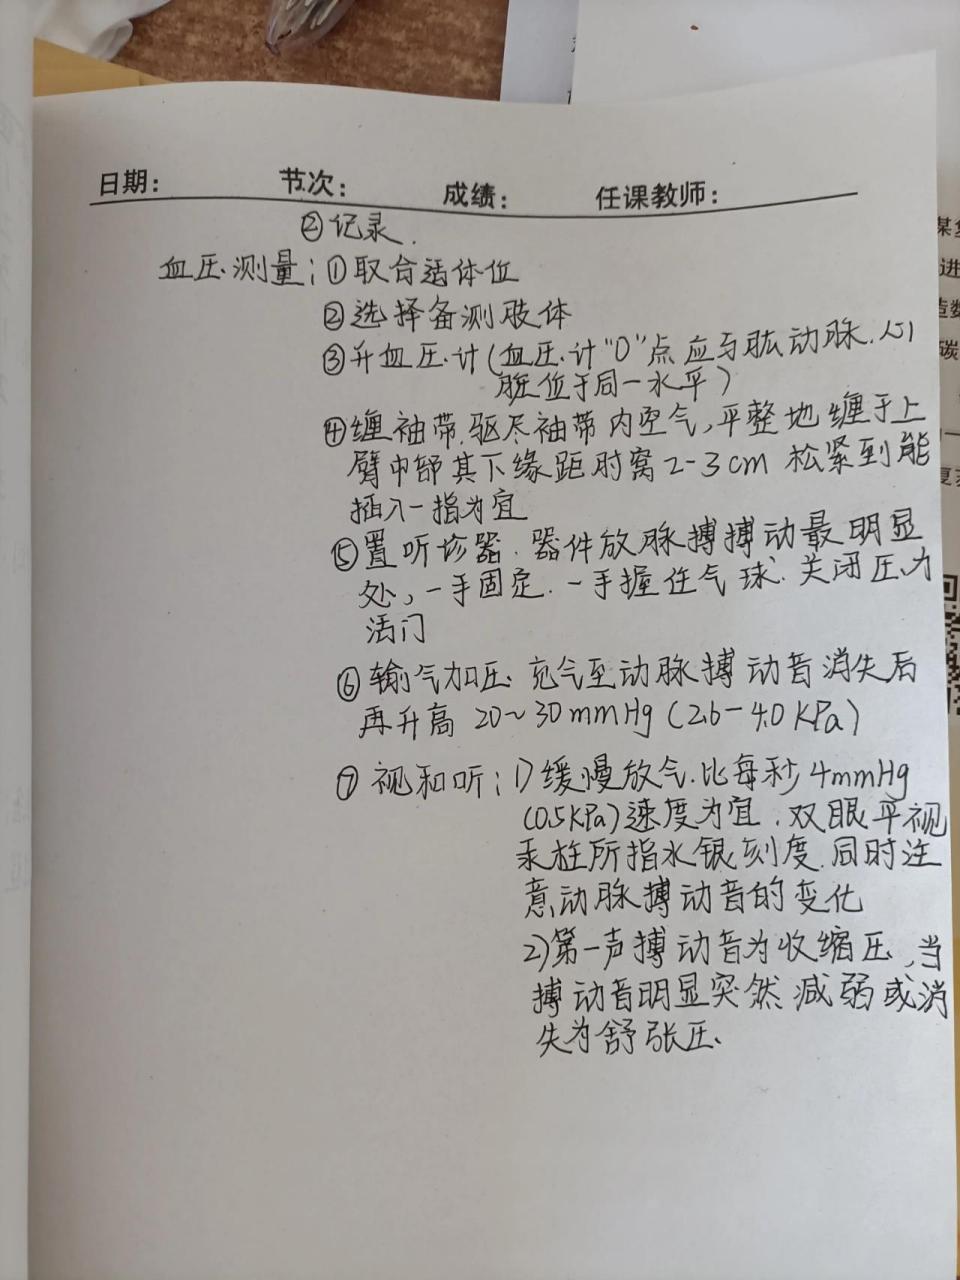 日期： 节次： 成绩： 任课教师：
②记录.
血压测量：①取合适体位
②选择备测肢体
③开血压计(血压计“0”点应与肱动脉.心
脏位于同一水平)
④缠袖带.驱尽袖带内空气,平整地缠于上
臂中部其下缘距肘窝2-3cm 松紧到能
插入一指为宜
⑤置听诊器.器件放脉搏搏动最明显
处,一手固定.一手握住气球.关闭压力
活门
⑥输气加压.充气至动脉搏动音消失后
再升高 20~30mmHg(2.6-4.0KPa)
⑦视和听：1)缓慢放气.比每秒4mmHg
(0.5KPa)速度为宜.双眼平视
汞柱所指水银刻度.同时注
意动脉搏动音的变化
2)第一声搏动音为收缩压,当
搏动音明显突然减弱或消
失为舒张压.
某
进
造数
碳
复